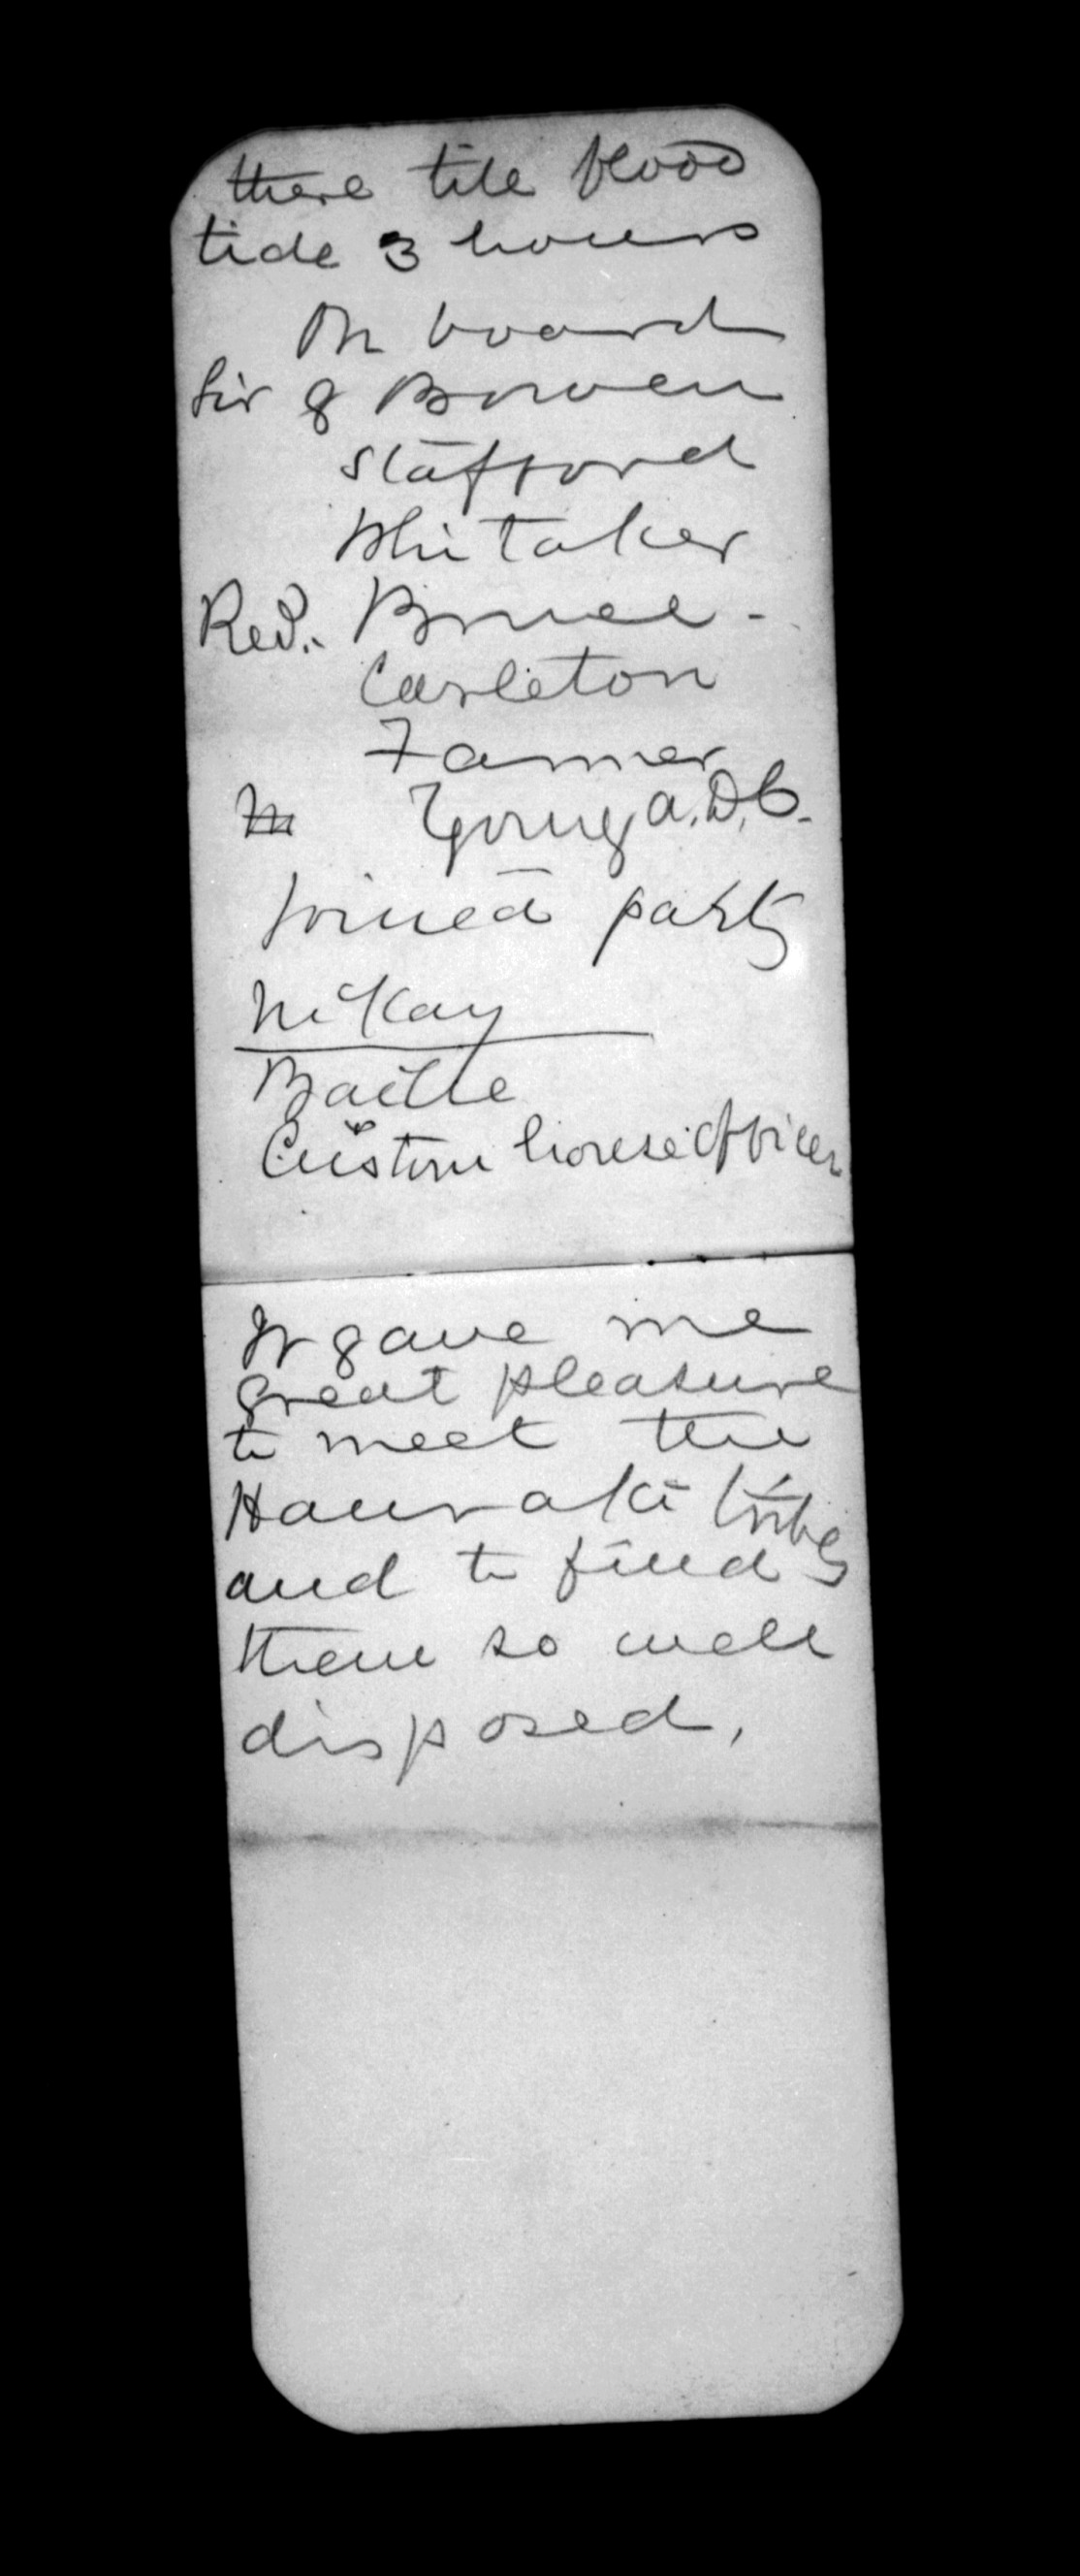 there till flood
tide 3 hours
On board
Sir G Bowen
Stafford
Whitaker
Rev. Bruce -
Carleton
Farmer
Young A.D.C.
Joined party
McKay
Baillie
Custom house Officer
It gave me
great pleasure
to meet the
Hauraki tribes
and to find
them so well
disposed.